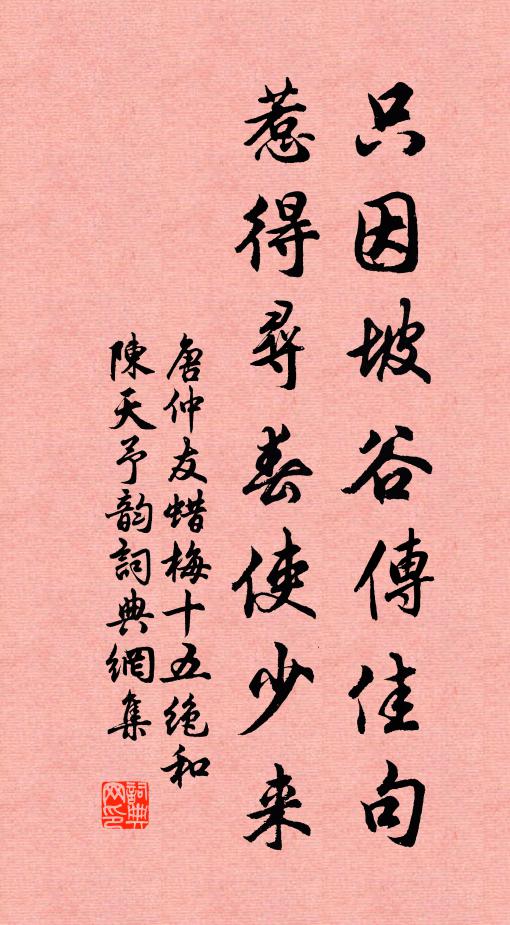 只因坡谷傳佳句
惹得尋春使少来
唐仲友蜡梅十五绝和
陳天予韵詞典網集
詞典网印